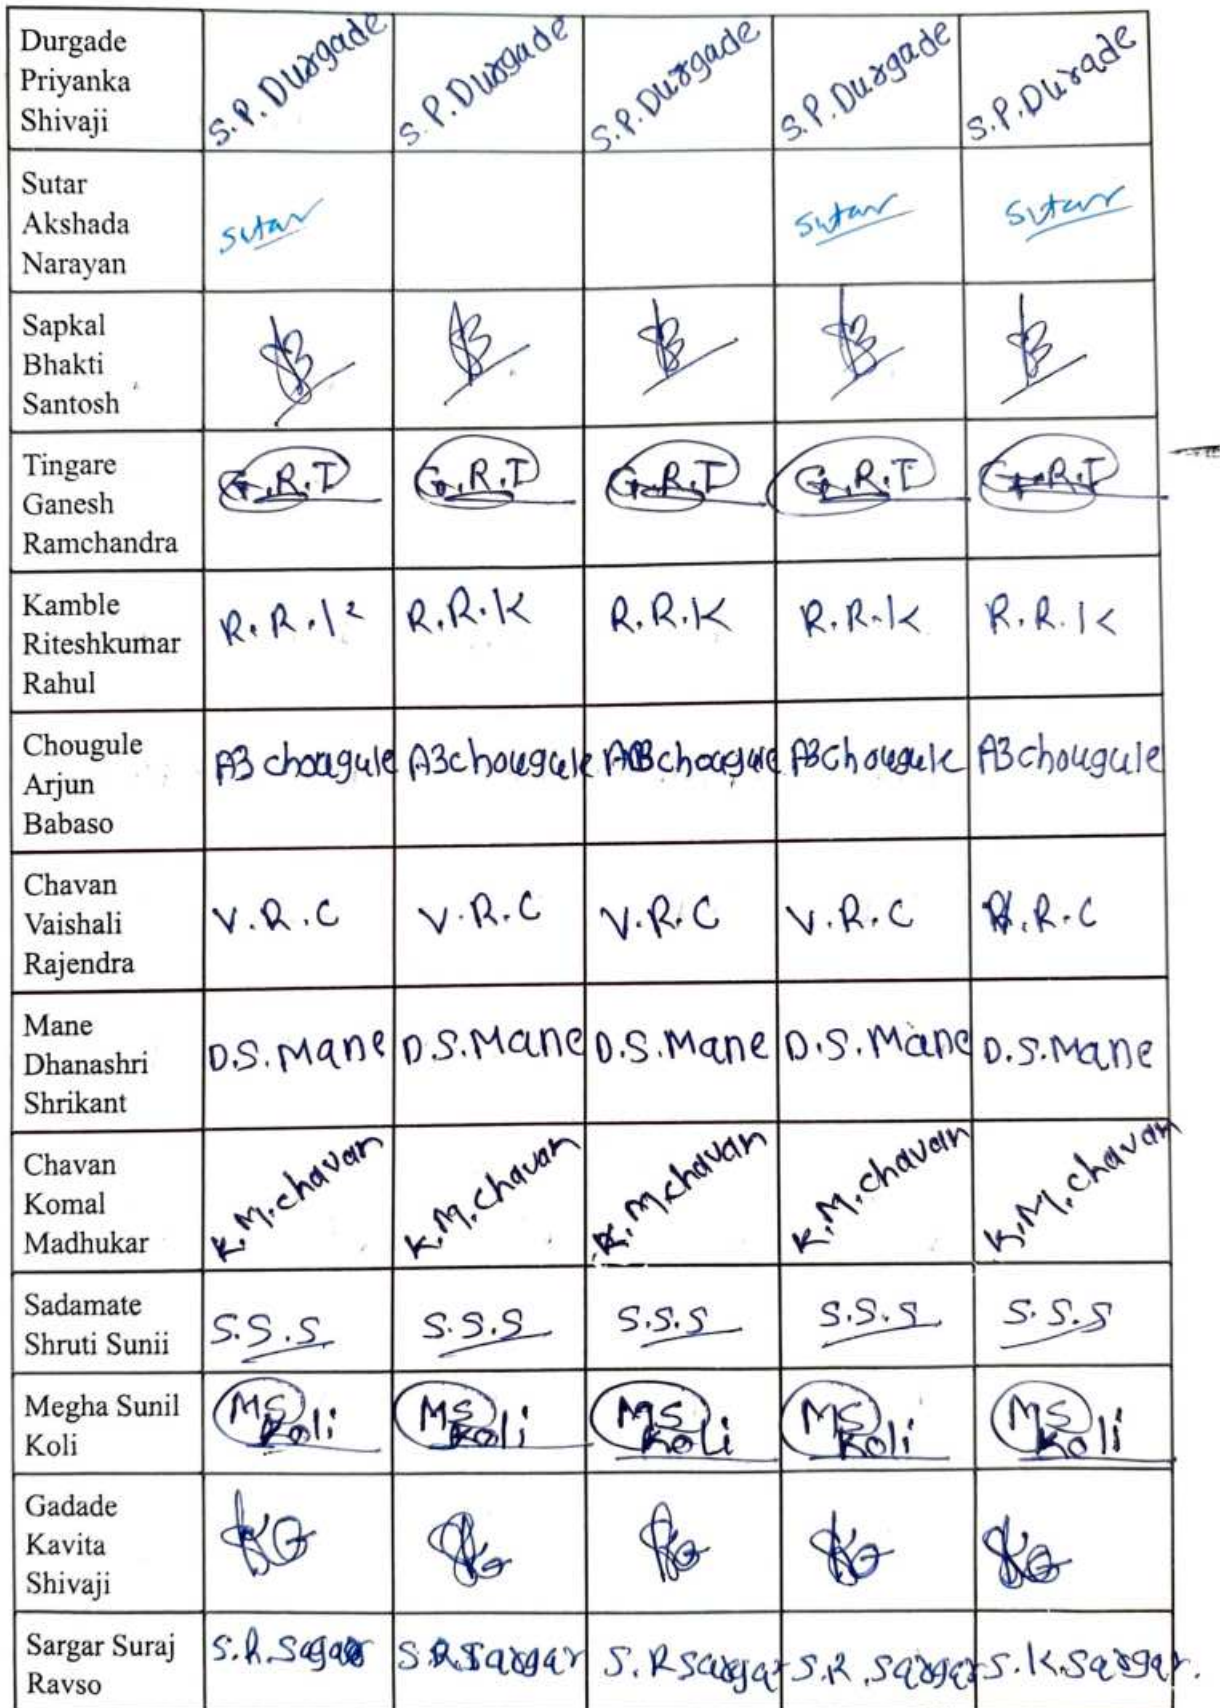 Durgade
Priyanka
Shivaji
S.P.Durgade S.P.Durgade S.P.Durgade S.P.Durgade S.P.Durade
Sutar
Akshada
Narayan
Sutar Sutar Sutar
Sapkal
Bhakti
Santosh
Tingare
Ganesh
Ramchandra
G.R.T G.R.T G.R.T G.R.T G.R.T
Kamble
Riteshkumar
Rahul
R.R.K R.R.K R.R.K R.R.K R.R.K
Chougule
Arjun
Babaso
ABchougule ABchougule ABchougule ABchougule ABchougule
Chavan
Vaishali
Rajendra
V.R.C V.R.C V.R.C V.R.C V.R.C
Mane
Dhanashri
Shrikant
D.S.Mane D.S.Mane D.S.Mane D.S.Mane D.S.Mane
Chavan
Komal
Madhukar
K.M.chavan K.M.chavan K.M.chavan K.M.chavan K.M.chavan
Sadamate
Shruti Sunii
S.S.S S.S.S S.S.S S.S.S S.S.S
Megha Sunil
Koli
MS Koli MS Koli MS Koli MS Koli MS Koli
Gadade
Kavita
Shivaji
KG KG KG KG KG
Sargar Suraj
Ravso
S.R.Sagar S.R.Sargar S.R Sargar S.R.Sargar S.R.Sargar.